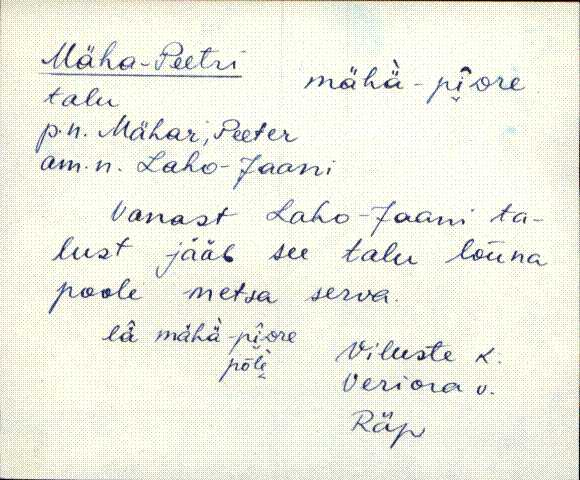 Mäha-Peetri mähà-pi̭ore
talu
p.n. Mähar, Peeter
am.n. Laho-Jaani
Vanast Laho-Jaani ta-
lust jääb see talu lõuna
poole metsa serva.
lâ mähà-pi̭ore
põlè
Viluste k.
Veriora v.
Räp